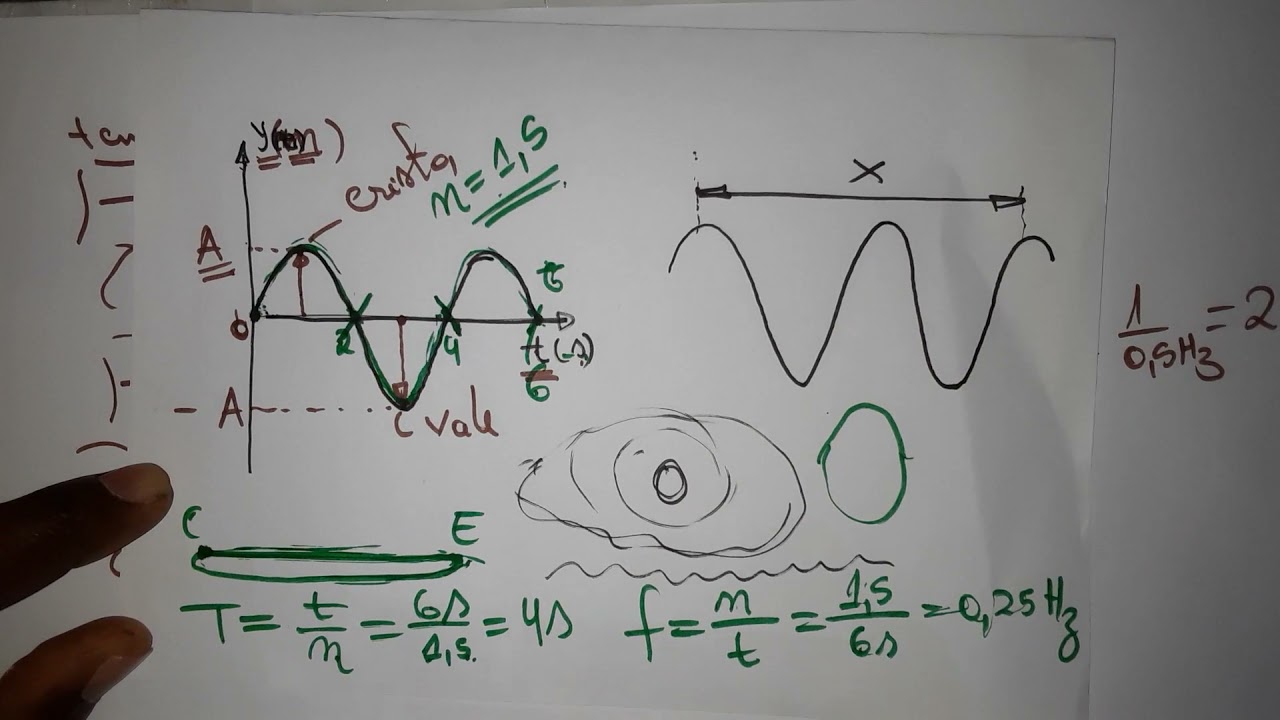 y(m)
crista
n = 1,5
A
0
2
4
6
t
t(s)
- A
vale
x
1/0,5Hz = 2
C E
T = t/n = 6s/1,5 = 4s
f = n/t = 1,5/6s = 0,25Hz